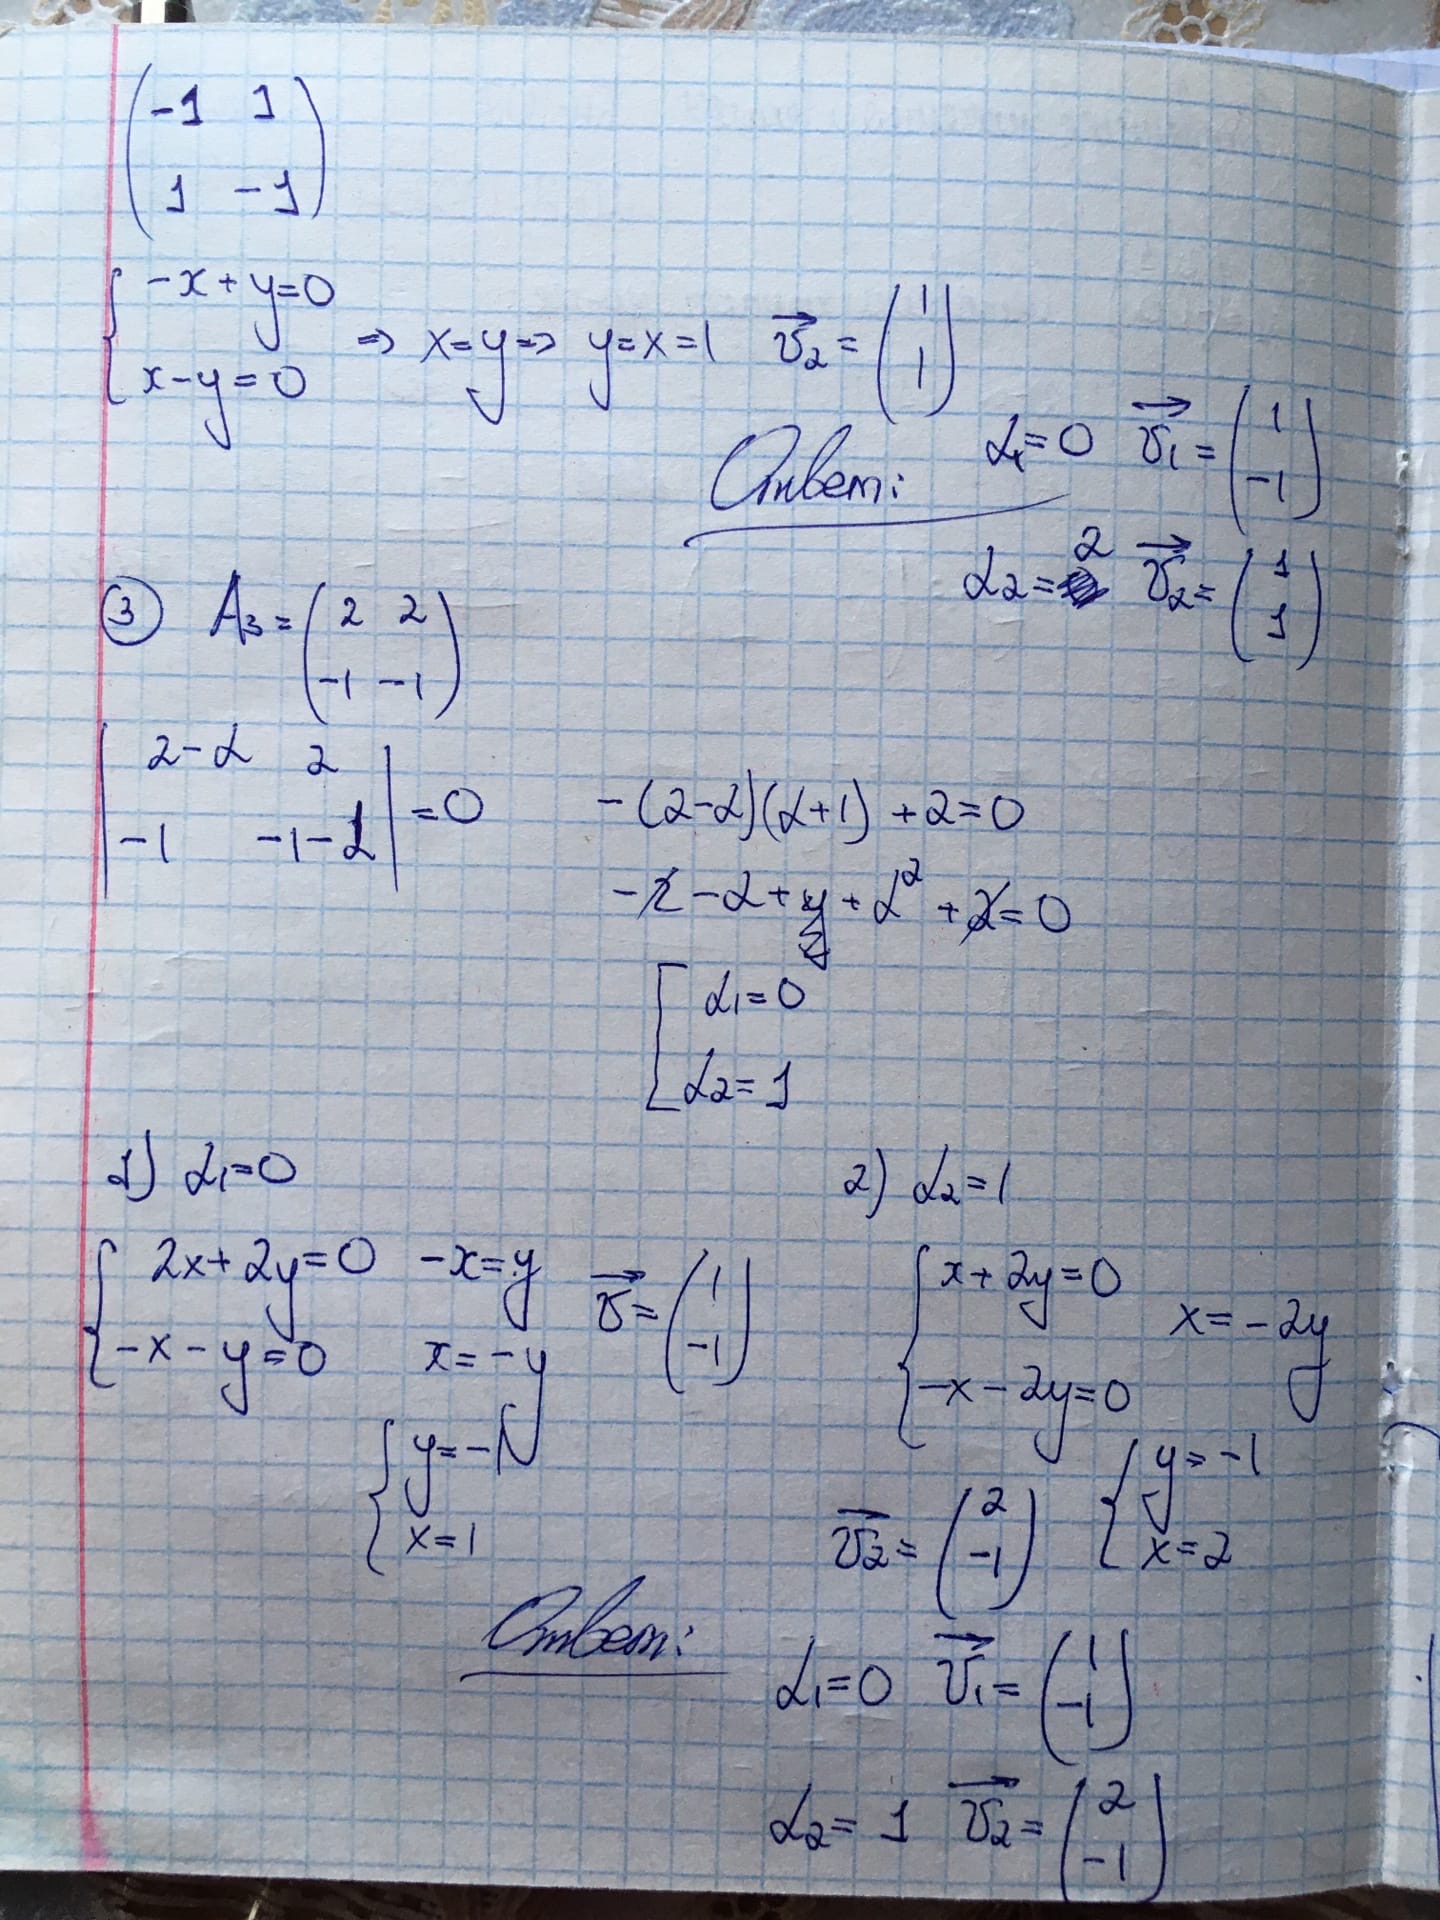 (-1 1
1 -1)
{-x+y=0
x-y=0 ⇒ x=y ⇒ y=x=1 v₂→ = (1 1)
Ответ: α₁=0 v₁→ = (1 -1)
α₂=2 v₂→ = (1 1)
③ A₃=(2 2
-1 -1)
|2-α 2
-1 -1-α|=0
-(2-α)(α+1)+2=0
-2-α+α²+2=0
[α₁=0
α₂=1
1) α₁=0
{2x+2y=0 -x=y
-x-y=0 x=-y
v→=(1 -1)
{y=-1
x=1
2) α₂=1
{x+2y=0
-x-2y=0 x=-2y
v₂→=(2 -1)
{y=-1
x=2
Ответ: α₁=0 v₁→=(1 -1)
α₂=1 v₂→=(2 -1)